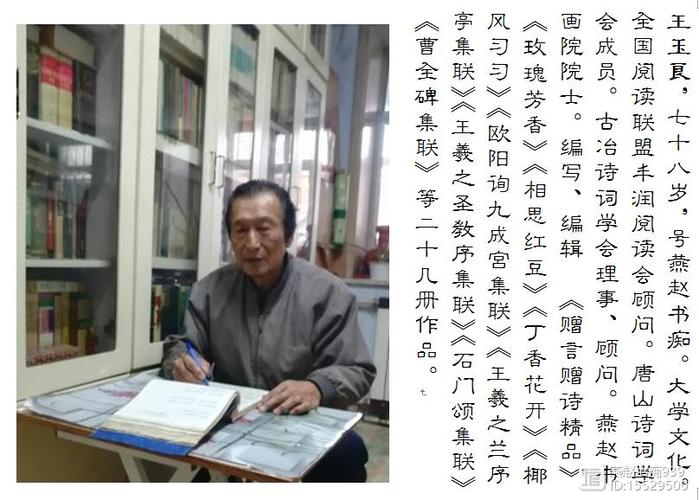 王玉良，七十八岁，号燕赵书痴。大学文化。
全国阅读联盟丰润阅读会顾问。唐山诗词学
会成员。古冶诗词学会理事、顾问。燕赵书
画院院士。编写、编辑 《赠言赠诗精品》
《玫瑰芳香》《相思红豆》《丁香花开》《椰
风习习》《欧阳询九成宫集联》《王羲之兰序
亭集联》《王羲之圣教序集联》《石门颂集联》
《曹全碑集联》等二十几册作品。
ID:15529500